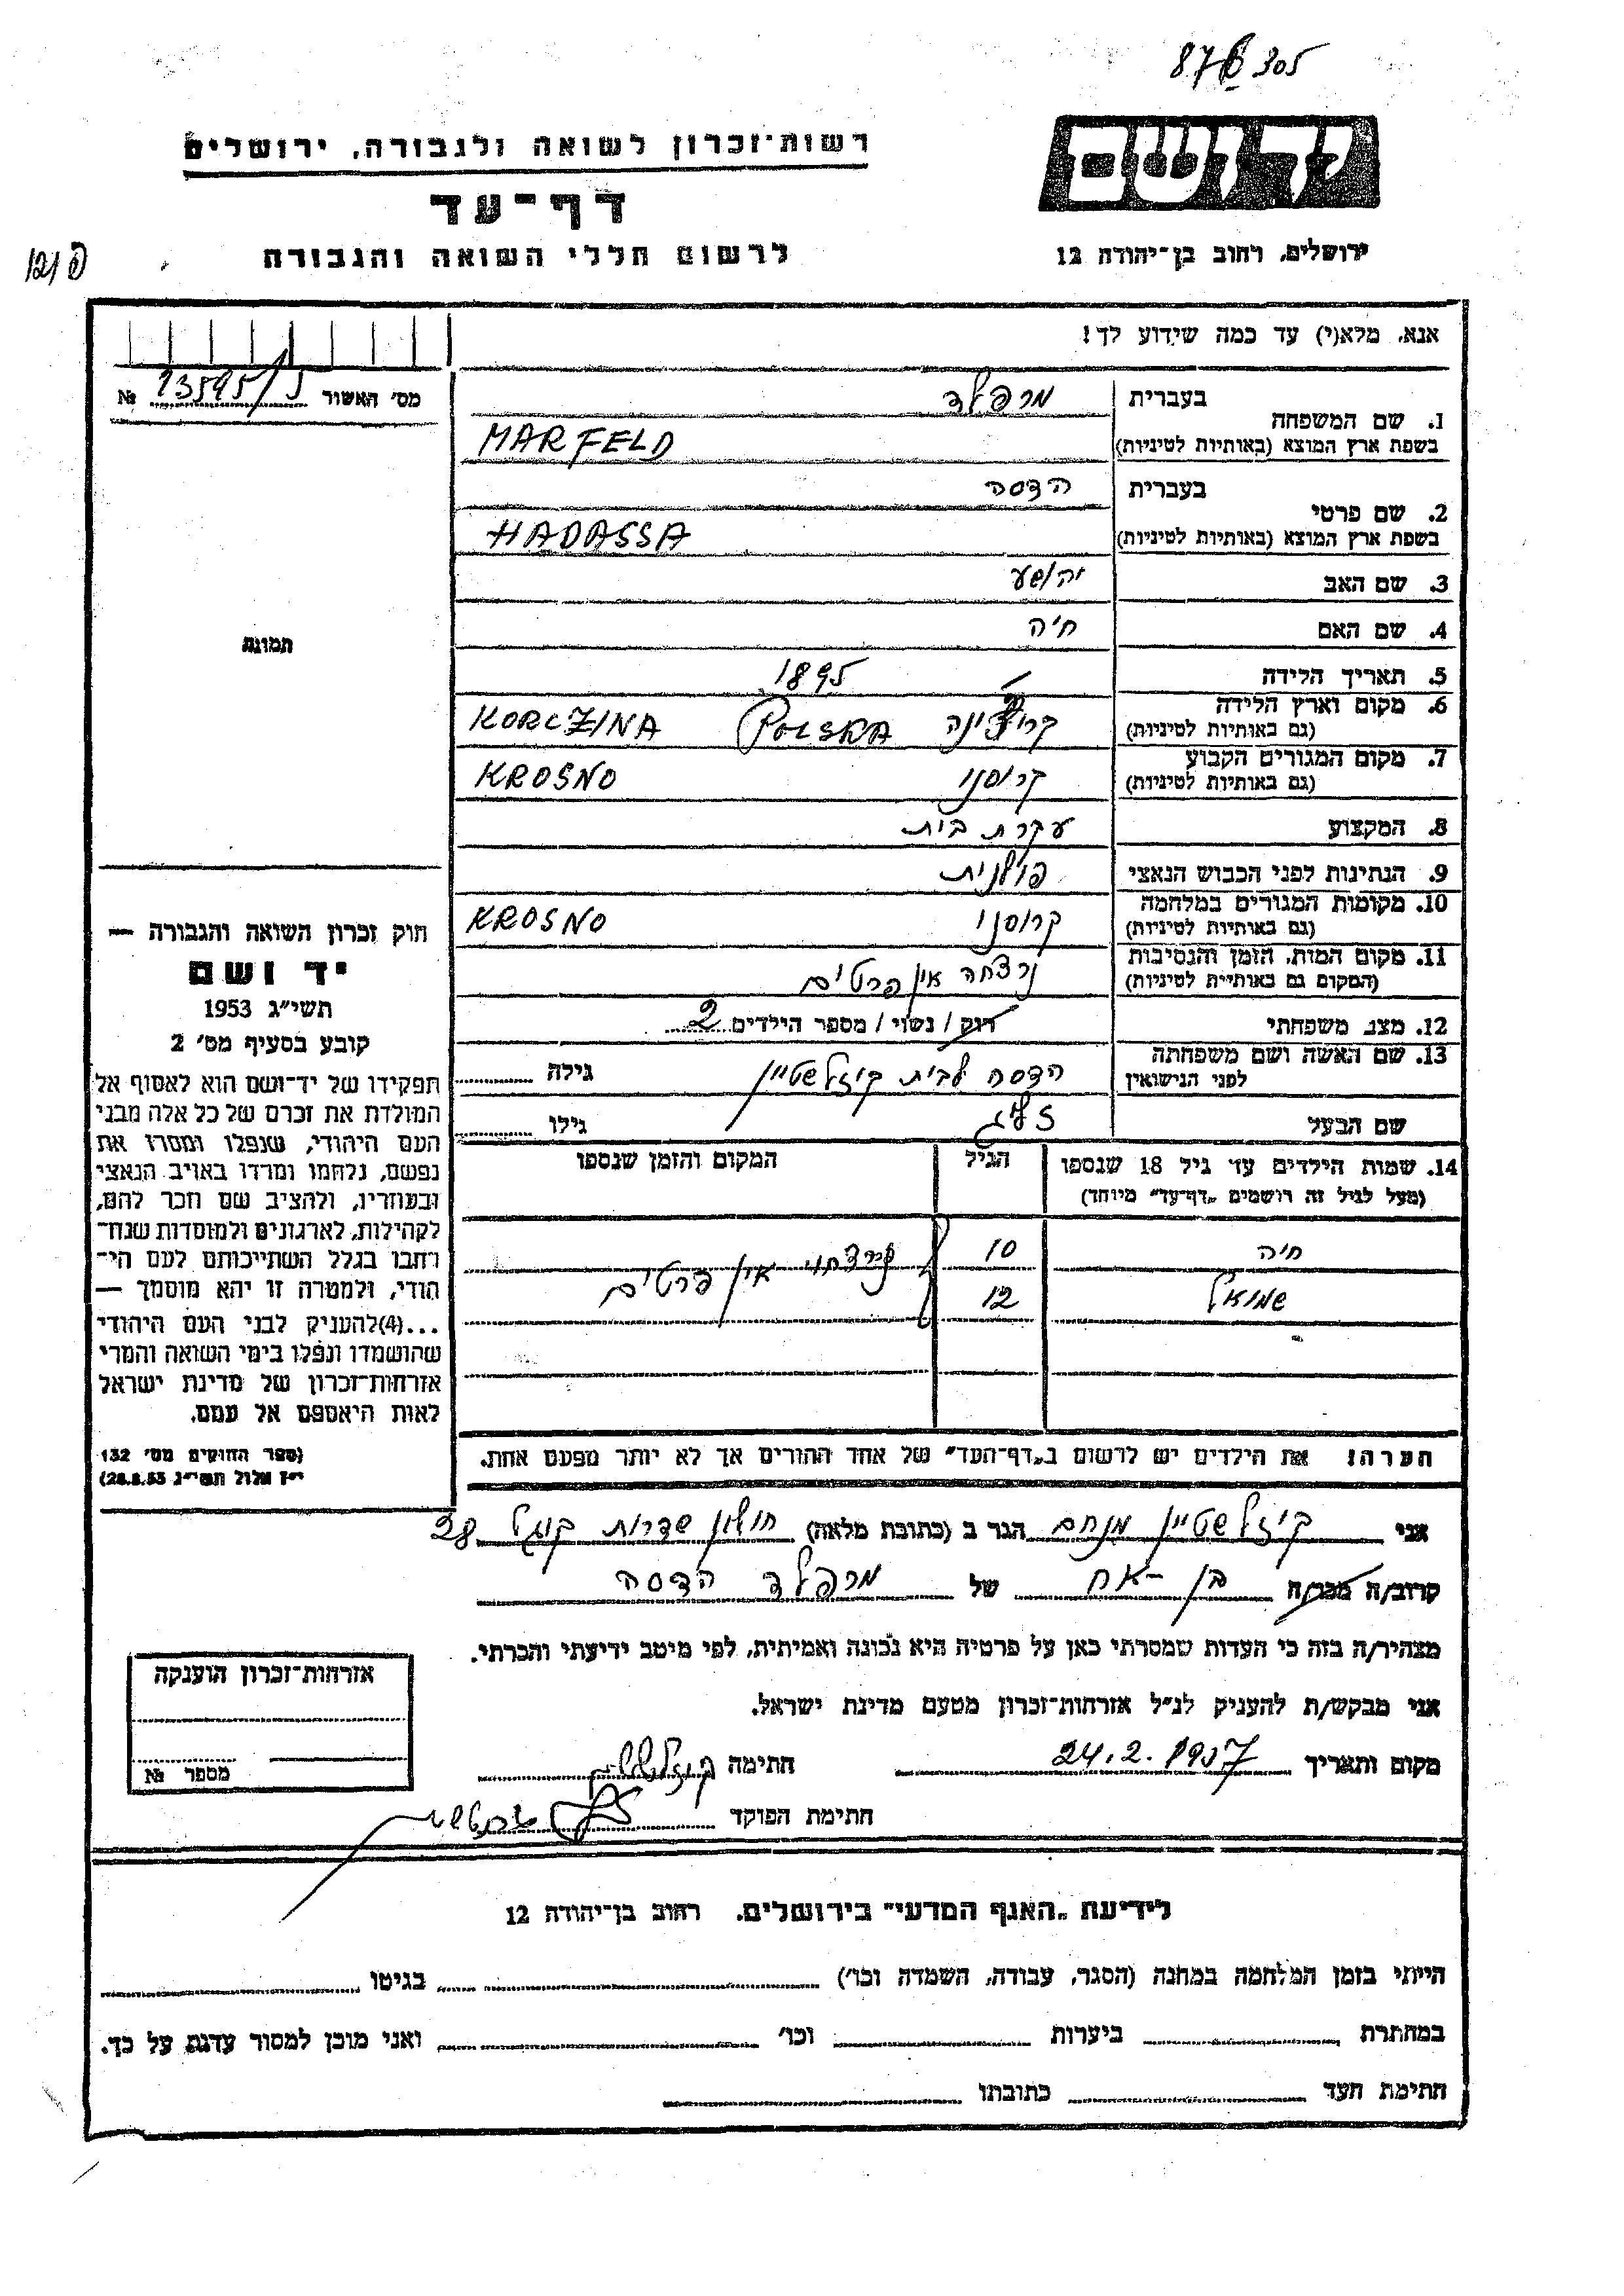 305
רשות־זכרון לשואה ולגבורה, ירושלים
יד ושם
דף־עד
לרשום חללי השואה והגבורה
ירושלים, רחוב בן־יהודה 12
אנא, מלא(י) עד כמה שידוע לך!
מס' האשור № 23595/
1. שם המשפחה
בעברית
מרפלד
בשפת ארץ המוצא (באותיות לטיניות)
MARFELD
2. שם פרטי
בעברית
הדסה
בשפת ארץ המוצא (באותיות לטיניות)
HADASSA
3. שם האב
יהושע
4. שם האם
חיה
5. תאריך הלידה
1895
6. מקום וארץ הלידה
(גם באותיות לטיניות)
POLSKA KORCZINA
7. מקום המגורים הקבוע
(גם באותיות לטיניות)
קרוסנו KROSNO
8. המקצוע
עקרת בית
9. הנתינות לפני הכבוש הנאצי
פולנית
10. מקומות המגורים במלחמה
(גם באותיות לטיניות)
קרוסנו KROSNO
11. מקום המות, הזמן והנסיבות
(המקום גם באותיות לטיניות)
נרצחה אין פרטים
12. מצב משפחתי
רוק / נשוי / מספר הילדים 2
13. שם האשה ושם משפחתה
לפני הנישואין
הדסה לבית קיזלשטיין
גילה
שם הבעל
זליג
גילו
14. שמות הילדים עד גיל 18 שנספו
(מעל לגיל זה רושמים „דף־עד" מיוחד)
הגיל
המקום והזמן שנספו
חיה 10
שמואל 12
נרצחו אין פרטים
הערה! את הילדים יש לרשום ב„דף־העד" של אחד ההורים אך לא יותר מפעם אחת.
תמונה
חוק זכרון השואה והגבורה —
יד ושם
תשי"ג 1953
קובע בסעיף מס' 2
תפקידו של יד־ושם הוא לאסוף אל
המולדת את זכרם של כל אלה מבני
העם היהודי, שנפלו ומסרו את
נפשם, נלחמו ומרדו באויב הנאצי
ובעוזריו, ולהציב שם וזכר להם,
לקהילות, לארגונים ולמוסדות שנח־
רחבו בגלל השתייכותם לעם הי־
הודי, ולמטרה זו יהא מוסמך —
...(4)להעניק לבני העם היהודי
שהושמדו ונפלו בימי השואה והמרי
אזרחות־זכרון של מדינת ישראל
לאות היאספם אל עמם.
(ספר החוקים מס' 132
י"ז אלול תשי"ג 28.8.53)
אני קיזלשטיין מנחם הגר ב (כתובת מלאה) חולון שדרות קוגל 28
קרוב/ה מכר/ה בן-אח של מרפלד הדסה
מצהיר/ה בזה כי העדות שמסרתי כאן על פרטיה היא נכונה ואמיתית, לפי מיטב ידיעתי והכרתי.
אני מבקש/ת להעניק לנ"ל אזרחות־זכרון מטעם מדינת ישראל.
מקום ותאריך 24.2.1957 חתימה
חתימת הפוקד
אזרחות־זכרון הוענקה
מספר №
לידיעת „האגף המדעי" בירושלים. רחוב בן־יהודה 12
הייתי בזמן המלחמה במחנה (הסגר, עבודה, השמדה וכו') בגיטו
במחתרת ביערות וכו' ואני מוכן למסור עדות על כך.
חתימת העד כתובתו